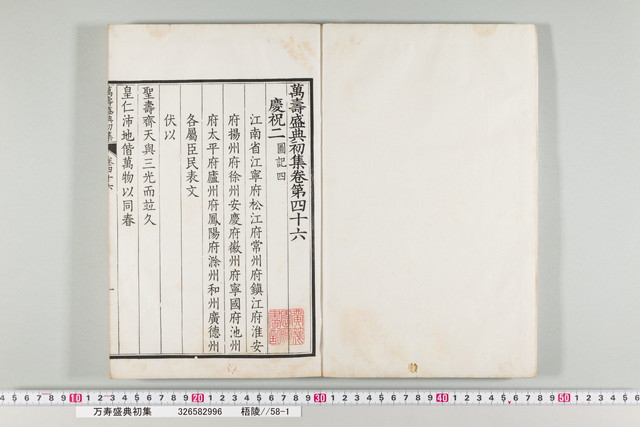 萬壽盛典初集卷第四十六
慶祝二 圖記四
江南省江寧府松江府常州府鎮江府淮安
府揚州府徐州安慶府徽州府寧國府池州
府太平府廬州府鳳陽府滁州和州廣德州
各屬臣民表文
伏以
聖壽齊天與三光而竝久
皇仁沛地偕萬物以同春
萬壽盛典初集 卷四十六 一
万寿盛典初集 326582996 梧陵//58-1